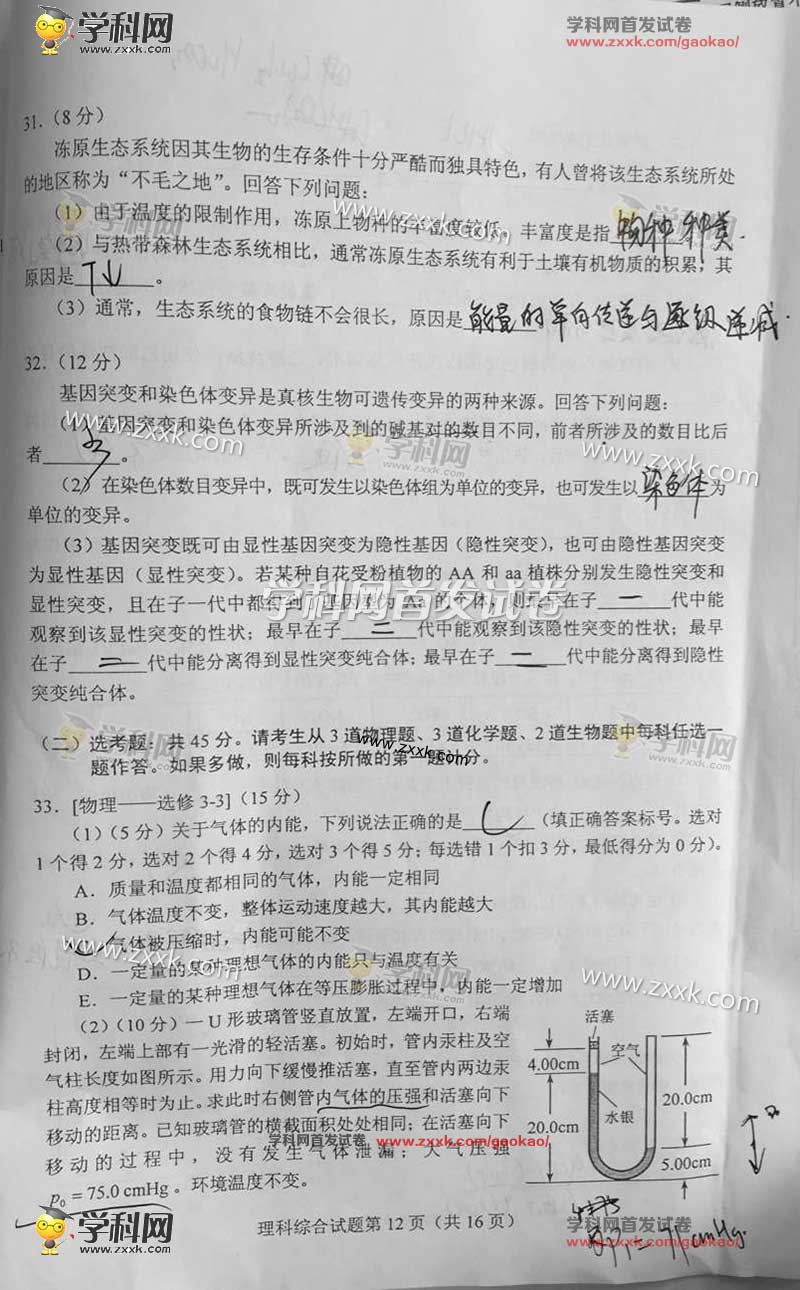 学科网 学科网首发试卷
www.zxxk.com www.zxxk.com/gaokao/
31.（8分）
冻原生态系统因其生物的生存条件十分严酷而独具特色，有人曾将该生态系统所处
的地区称为“不毛之地”。回答下列问题：
（1）由于温度的限制作用，冻原上物种的丰富度较低。丰富度是指物种种类.
（2）与热带森林生态系统相比，通常冻原生态系统有利于土壤有机物质的积累，其
原因是T↓。
（3）通常，生态系统的食物链不会很长，原因是能量的单向传递与逐级递减.
32.（12分）
基因突变和染色体变异是真核生物可遗传变异的两种来源。回答下列问题：
（1）基因突变和染色体变异所涉及到的碱基对的数目不同，前者所涉及的数目比后
者 。
（2）在染色体数目变异中，既可发生以染色体组为单位的变异，也可发生以染色体为
单位的变异。
（3）基因突变既可由显性基因突变为隐性基因（隐性突变），也可由隐性基因突变
为显性基因（显性突变）。若某种自花受粉植物的 AA 和 aa 植株分别发生隐性突变和
显性突变，且在子一代中都得到了基因型为 Aa 的个体，则最早在子一代中能
观察到该显性突变的性状；最早在子二代中能观察到该隐性突变的性状；最早
在子三代中能分离得到显性突变纯合体；最早在子二代中能分离得到隐性
突变纯合体。
学科网首发试卷
（二）选考题：共 45 分。请考生从 3 道物理题、3 道化学题、2 道生物题中每科任选一
题作答。如果多做，则每科按所做的第一题计分。
www.zxxk.com
33．[物理——选修 3-3]（15 分）
（1）（5 分）关于气体的内能，下列说法正确的是 C （填正确答案标号。选对
1 个得 2 分，选对 2 个得 4 分，选对 3 个得 5 分；每选错 1 个扣 3 分，最低得分为 0 分）。
A．质量和温度都相同的气体，内能一定相同
B．气体温度不变，整体运动速度越大，其内能越大
气体被压缩时，内能可能不变
D．一定量的某种理想气体的内能只与温度有关
E．一定量的某种理想气体在等压膨胀过程中，内能一定增加
（2）（10 分）一 U 形玻璃管竖直放置，左端开口，右端
封闭，左端上部有一光滑的轻活塞。初始时，管内汞柱及空
气柱长度如图所示。用力向下缓慢推活塞，直至管内两边汞
柱高度相等时为止。求此时右侧管内气体的压强和活塞向下
移动的距离。已知玻璃管的横截面积处处相同；在活塞向下
移动的过程中，没有发生气体泄漏；大气压强
p₀ = 75.0 cmHg。环境温度不变。
活塞
空气
4.00cm
水银
20.0cm
20.0cm
5.00cm
学科网首发试卷 www.zxxk.com/gaokao/
理科综合试题第 12 页（共 16 页）
学科网
www.zxxk.com
学科网
www.zxxk.com